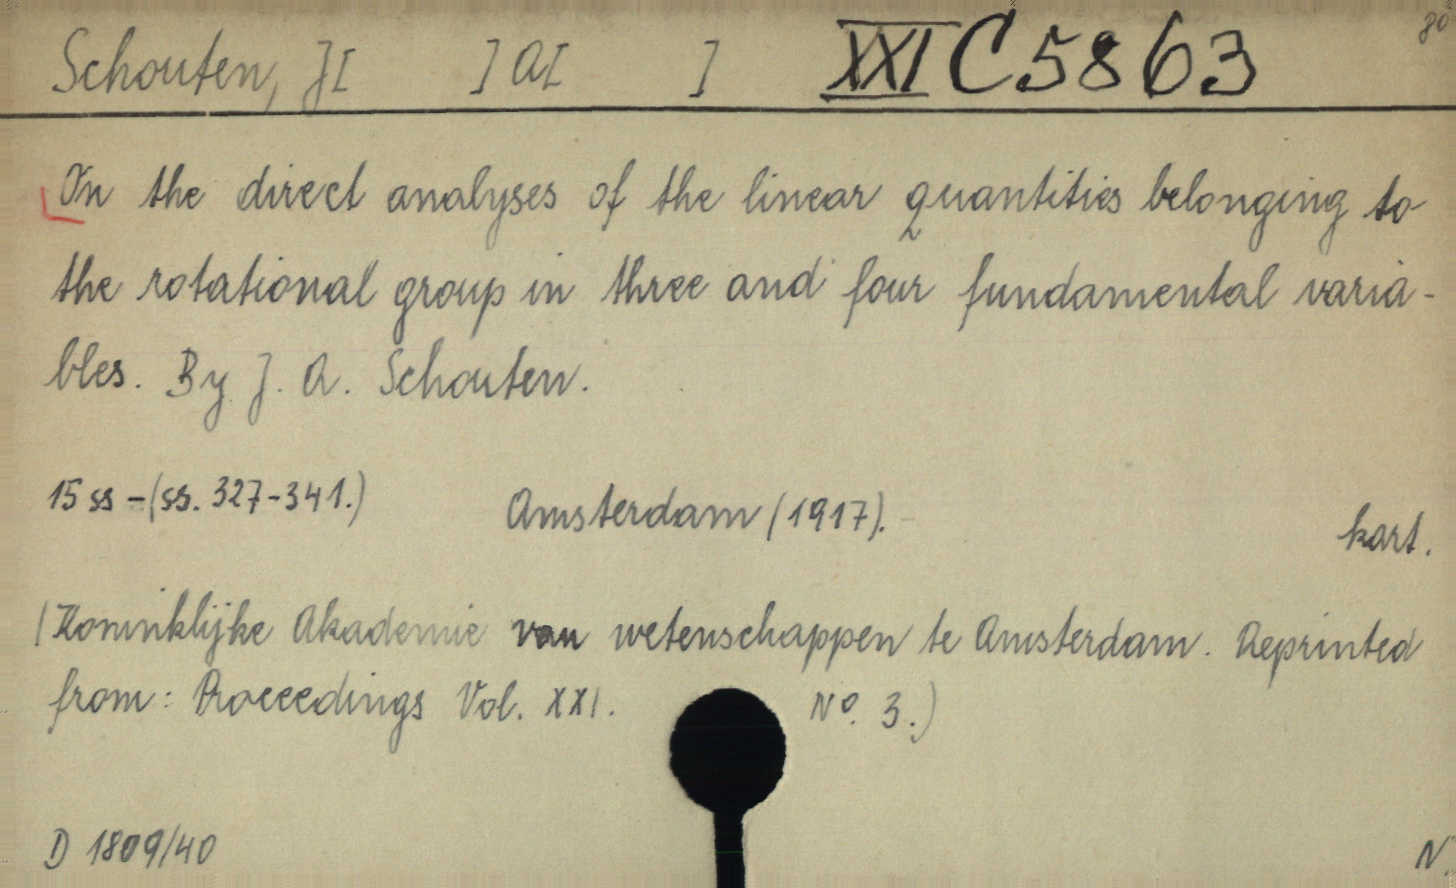 Schouten, J[ ] A[ ] XXI C 5863 80
On the direct analyses of the linear quantities belonging to
the rotational group in three and four fundamental varia-
bles. By J. A. Schouten.
15 ss - (ss. 327-341.) Amsterdam (1917). kart.
(Koninklijke Akademie van wetenschappen te Amsterdam. Reprinted
from: Proceedings Vol. XXI. No. 3.)
D 1809/40 N